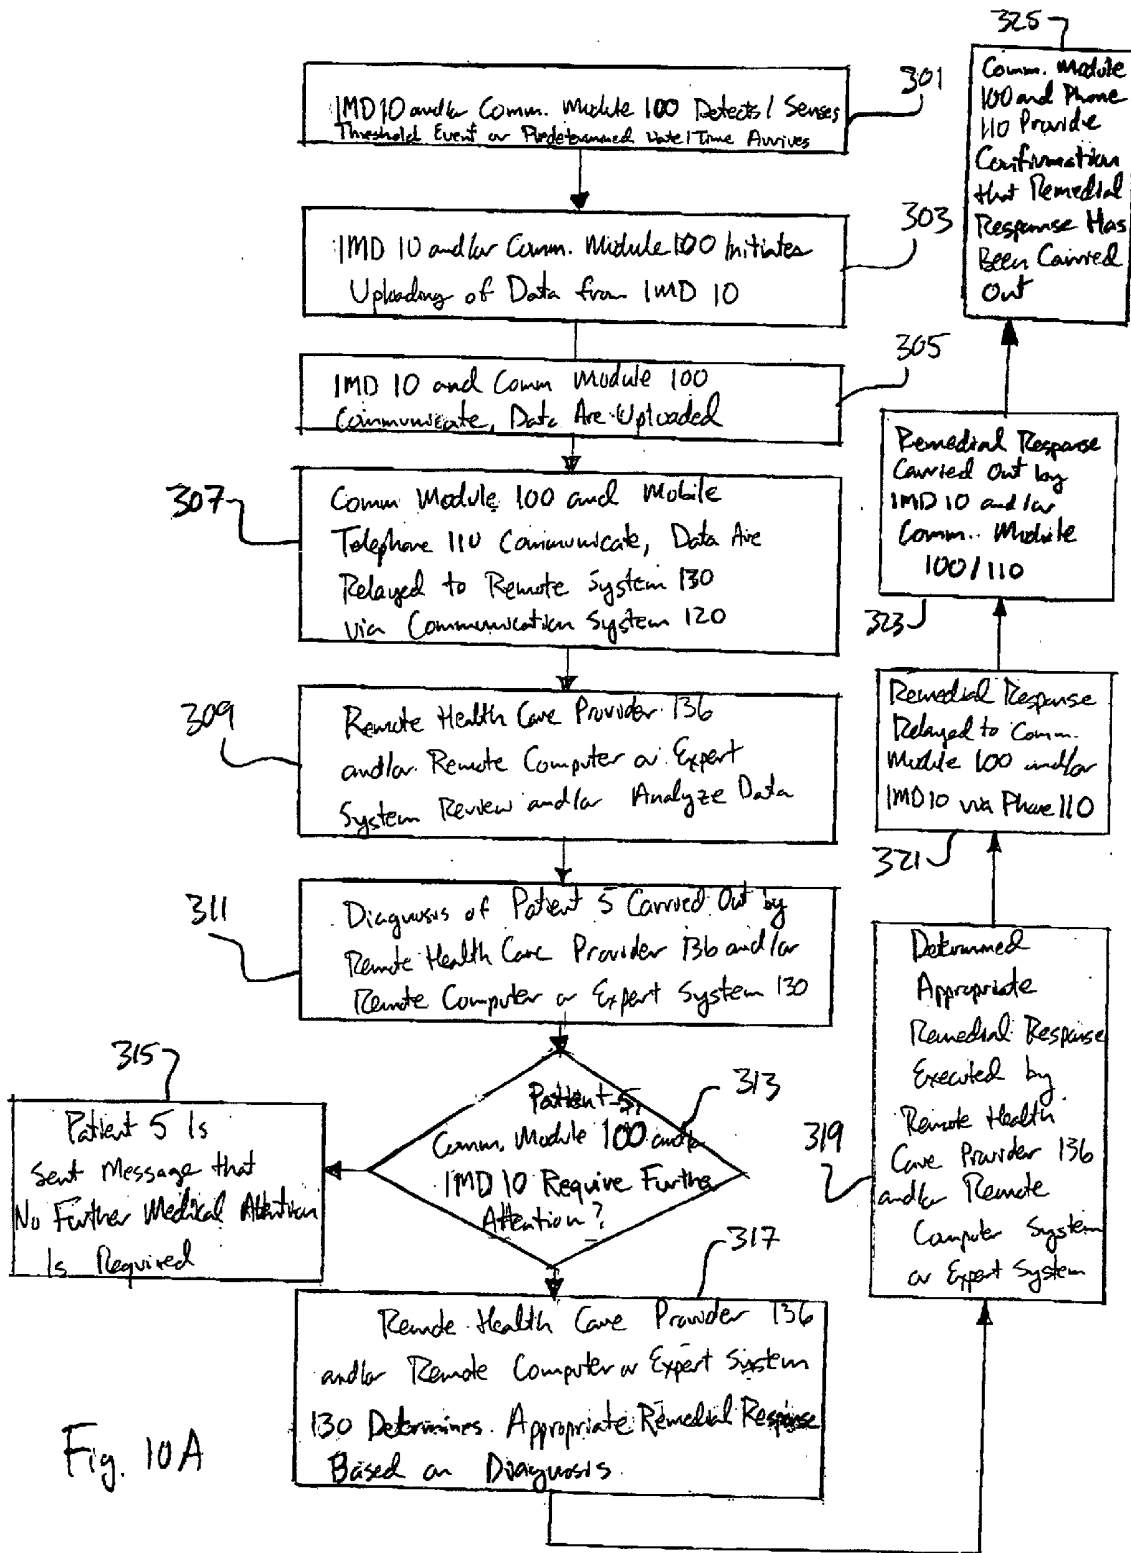 301
IMD 10 and/or Comm. Module 100 Detects / Senses
Threshold Event or Predetermined Date / Time Arrives
303
IMD 10 and/or Comm. Module 100 Initiates
Uploading of Data from IMD 10
305
IMD 10 and Comm Module 100
Communicate, Data Are Uploaded
307
Comm Module 100 and Mobile
Telephone 110 Communicate, Data Are
Relayed to Remote System 130
via Communication System 120
309
Remote Health Care Provider 136
and/or Remote Computer or Expert
System Review and/or Analyze Data
311
Diagnosis of Patient 5 Carried Out by
Remote Health Care Provider 136 and/or
Remote Computer or Expert System 130
313
Patient 5,
Comm. Module 100 and/or
IMD 10 Require Further
Attention?
315
Patient 5 Is
Sent Message that
No Further Medical Attention
Is Required
317
Remote Health Care Provider 136
and/or Remote Computer or Expert System
130 Determines Appropriate Remedial Response
Based on Diagnosis.
319
Determined
Appropriate
Remedial Response
Executed by
Remote Health
Care Provider 136
and/or Remote
Computer System
or Expert System
321
Remedial Response
Relayed to Comm.
Module 100 and/or
IMD 10 via Phone 110
323
Remedial Response
Carried Out by
IMD 10 and/or
Comm. Module
100/110
325
Comm. Module
100 and Phone
110 Provide
Confirmation
that Remedial
Response Has
Been Carried
Out
Fig. 10A